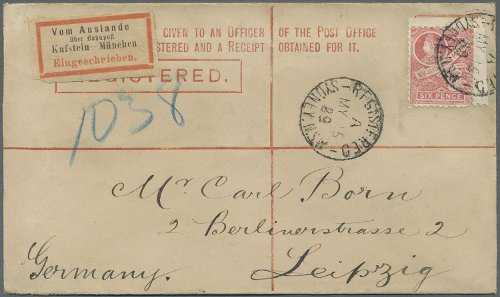 Vom Auslande
über Bahnpost
Kufstein - München
Eingeschrieben.
GIVEN TO AN OFFICER OF THE POST OFFICE
STERED AND A RECEIPT OBTAINED FOR IT.
REGISTERED.
1038
REGISTERED
A
MY 6
89
SYDNEY.N.S.W
SIX PENCE
Mr. Carl Born
2 Berlinerstrasse 2
Leipzig
Germany.